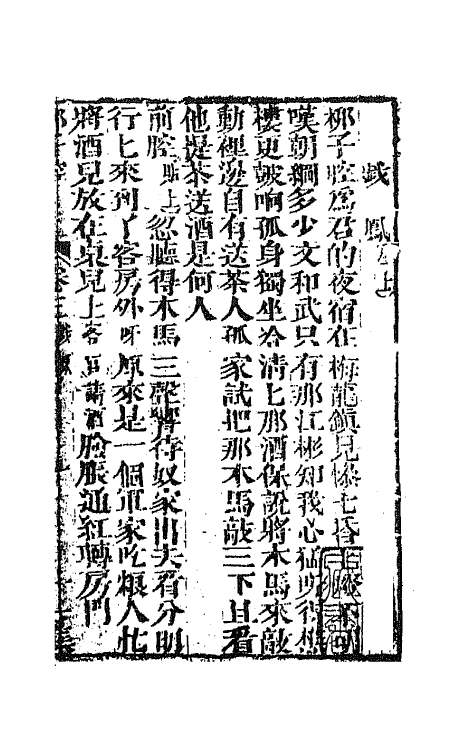 戱鳳 生上
梆子腔爲君的夜宿在梅龍鎮見燈七昏
嘆朝綱多少文和武只有那江彬知我心猛听得樵
樓更皷响孤身獨坐冷清七那酒保說將木馬來敲
動裡邊自有送茶人孤家試把那木馬敲三下且看
他提茶送酒是何人
前腔 貼上 忽聽得木馬三聲響待奴家出去看分明
行七來到了客房外呀原來是一個軍家吃粮人此
將酒兒放在桌兒上客官請酒臉脹通紅轉房門